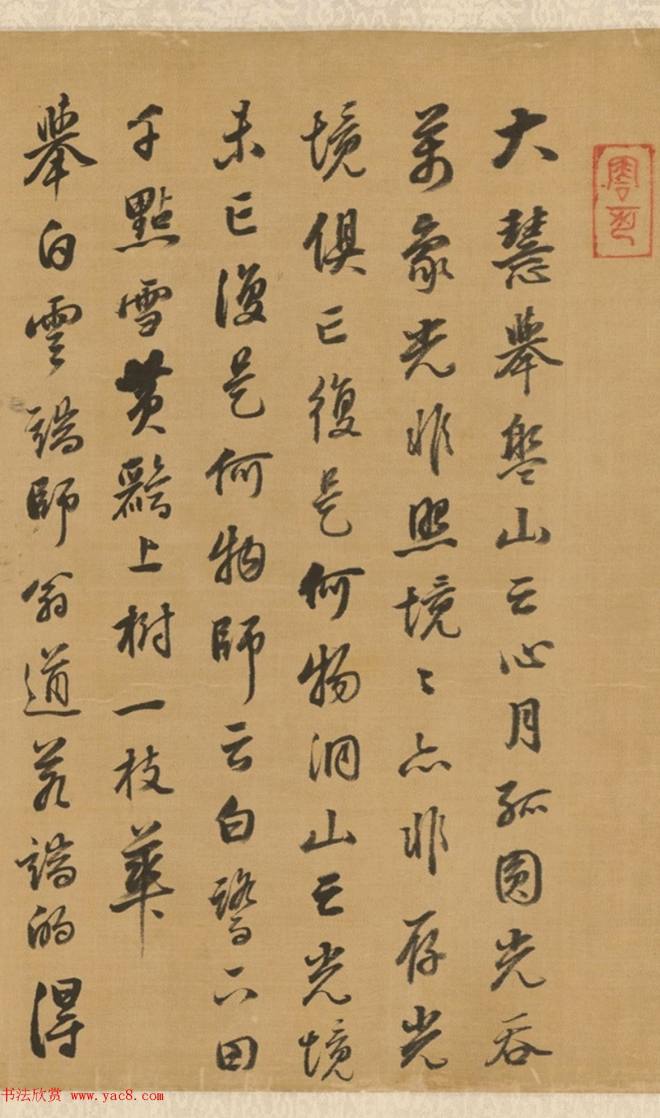 大慧举盤山云心月孤圓光吞
萬象光非照境〻亦非存光
境俱亡復是何物洞山云光境
未亡復是何物師云白鷺下田
千點雪黄鸝上樹一枝華
舉白雲端師翁道若端的得
书法欣赏 www.yac8.com